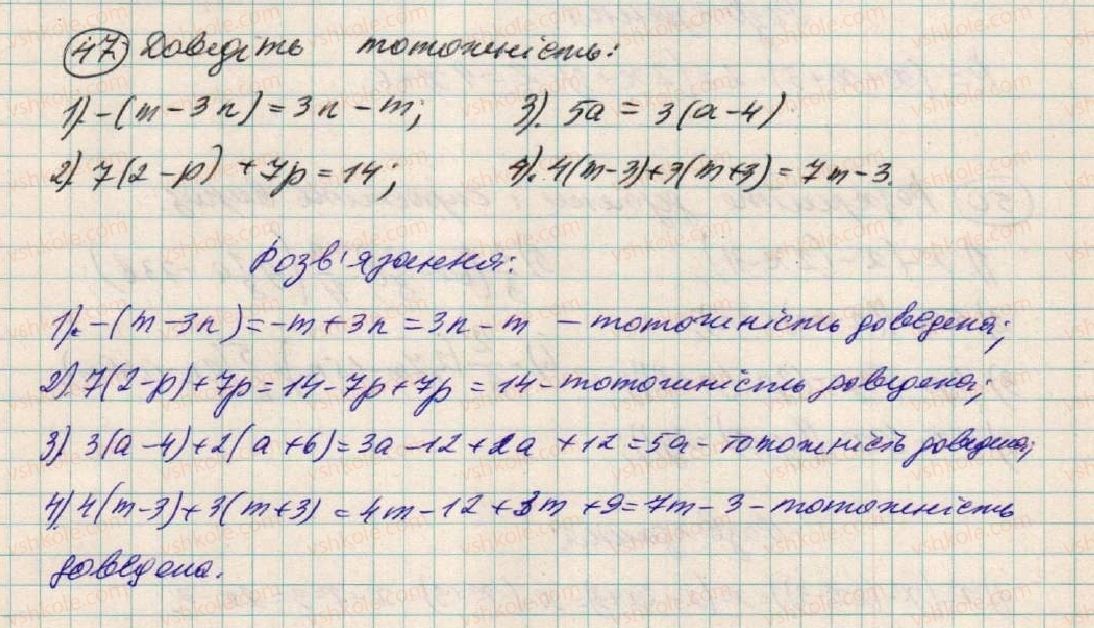 47 Доведіть тотожність:
1). -(m - 3n) = 3n - m; 3). 5a = 3(a - 4)
2). 7(2 - p) + 7p = 14; 4). 4(m - 3) + 3(m + 3) = 7m - 3.
Розв'язання:
1). -(m - 3n) = -m + 3n = 3n - m - тотожність доведена;
2). 7(2 - p) + 7p = 14 - 7p + 7p = 14 - тотожність доведена;
3). 3(a - 4) + 2(a + 6) = 3a - 12 + 2a + 12 = 5a - тотожність доведена;
4). 4(m - 3) + 3(m + 3) = 4m - 12 + 3m + 9 = 7m - 3 - тотожність
доведена.
vshkole.com